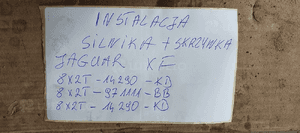 INSTALACJA
SILNIKA + SKRZYNKA
JAGUAR XF
8X2T-14290-KD
8X2T-9J1111-BB
8X2T-14290-KD